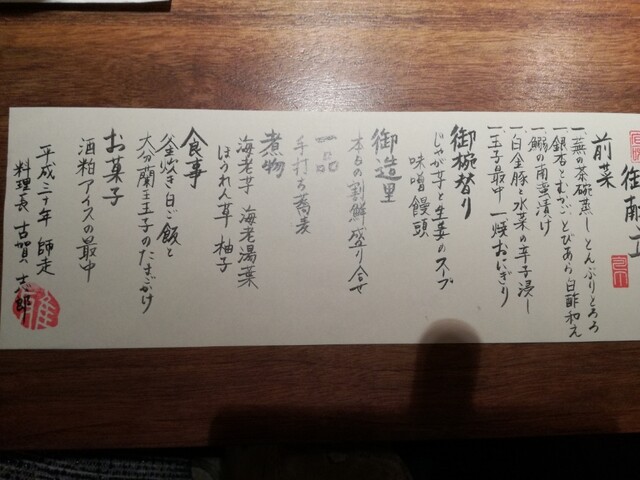 御献立
前菜
一蕪の茶碗蒸し とんぶりとろろ
一銀杏とむかごとびあら白酢和え
一鰯の南蛮漬け
一白金豚と水菜の辛子浸し
一玉子最中 一焼おにぎり
御椀替り
じゃが芋と生姜のスープ
味噌饅頭
御造里
本日の割鮮盛り合せ
一品
手打ち蕎麦
煮物
海老芋 海老湯葉
ほうれん草 柚子
食事
釜炊き白ご飯と
大分蘭王玉子のたまごがけ
お菓子
酒粕アイスの最中
平成三十年 師走
料理長 古賀 郎